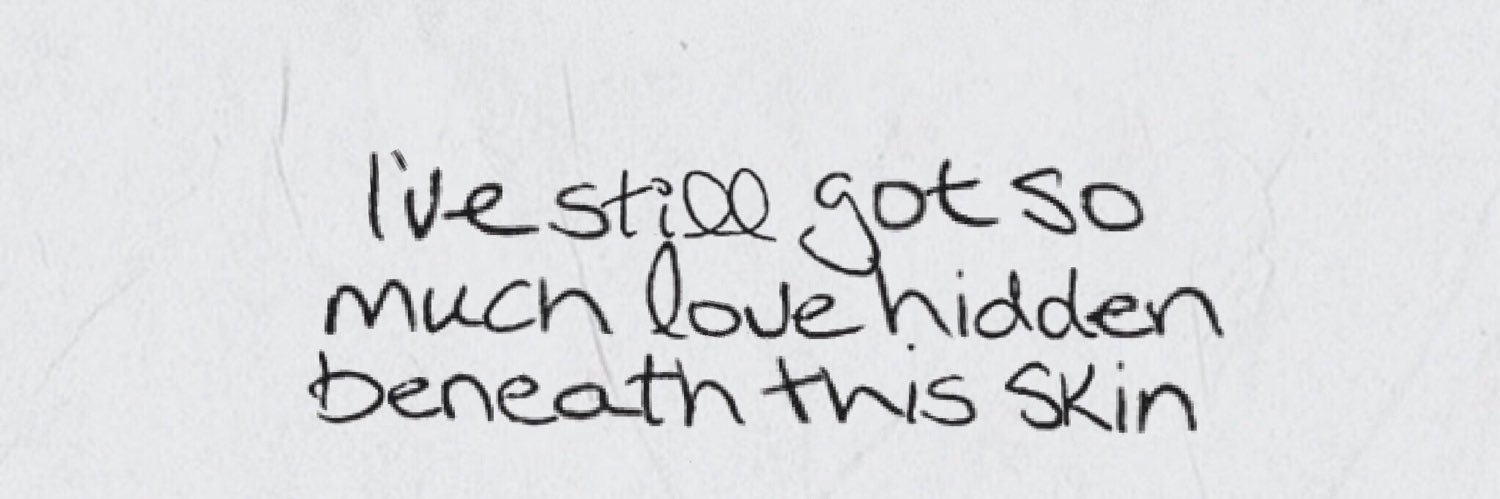 I've still got so
much love hidden
beneath this skin